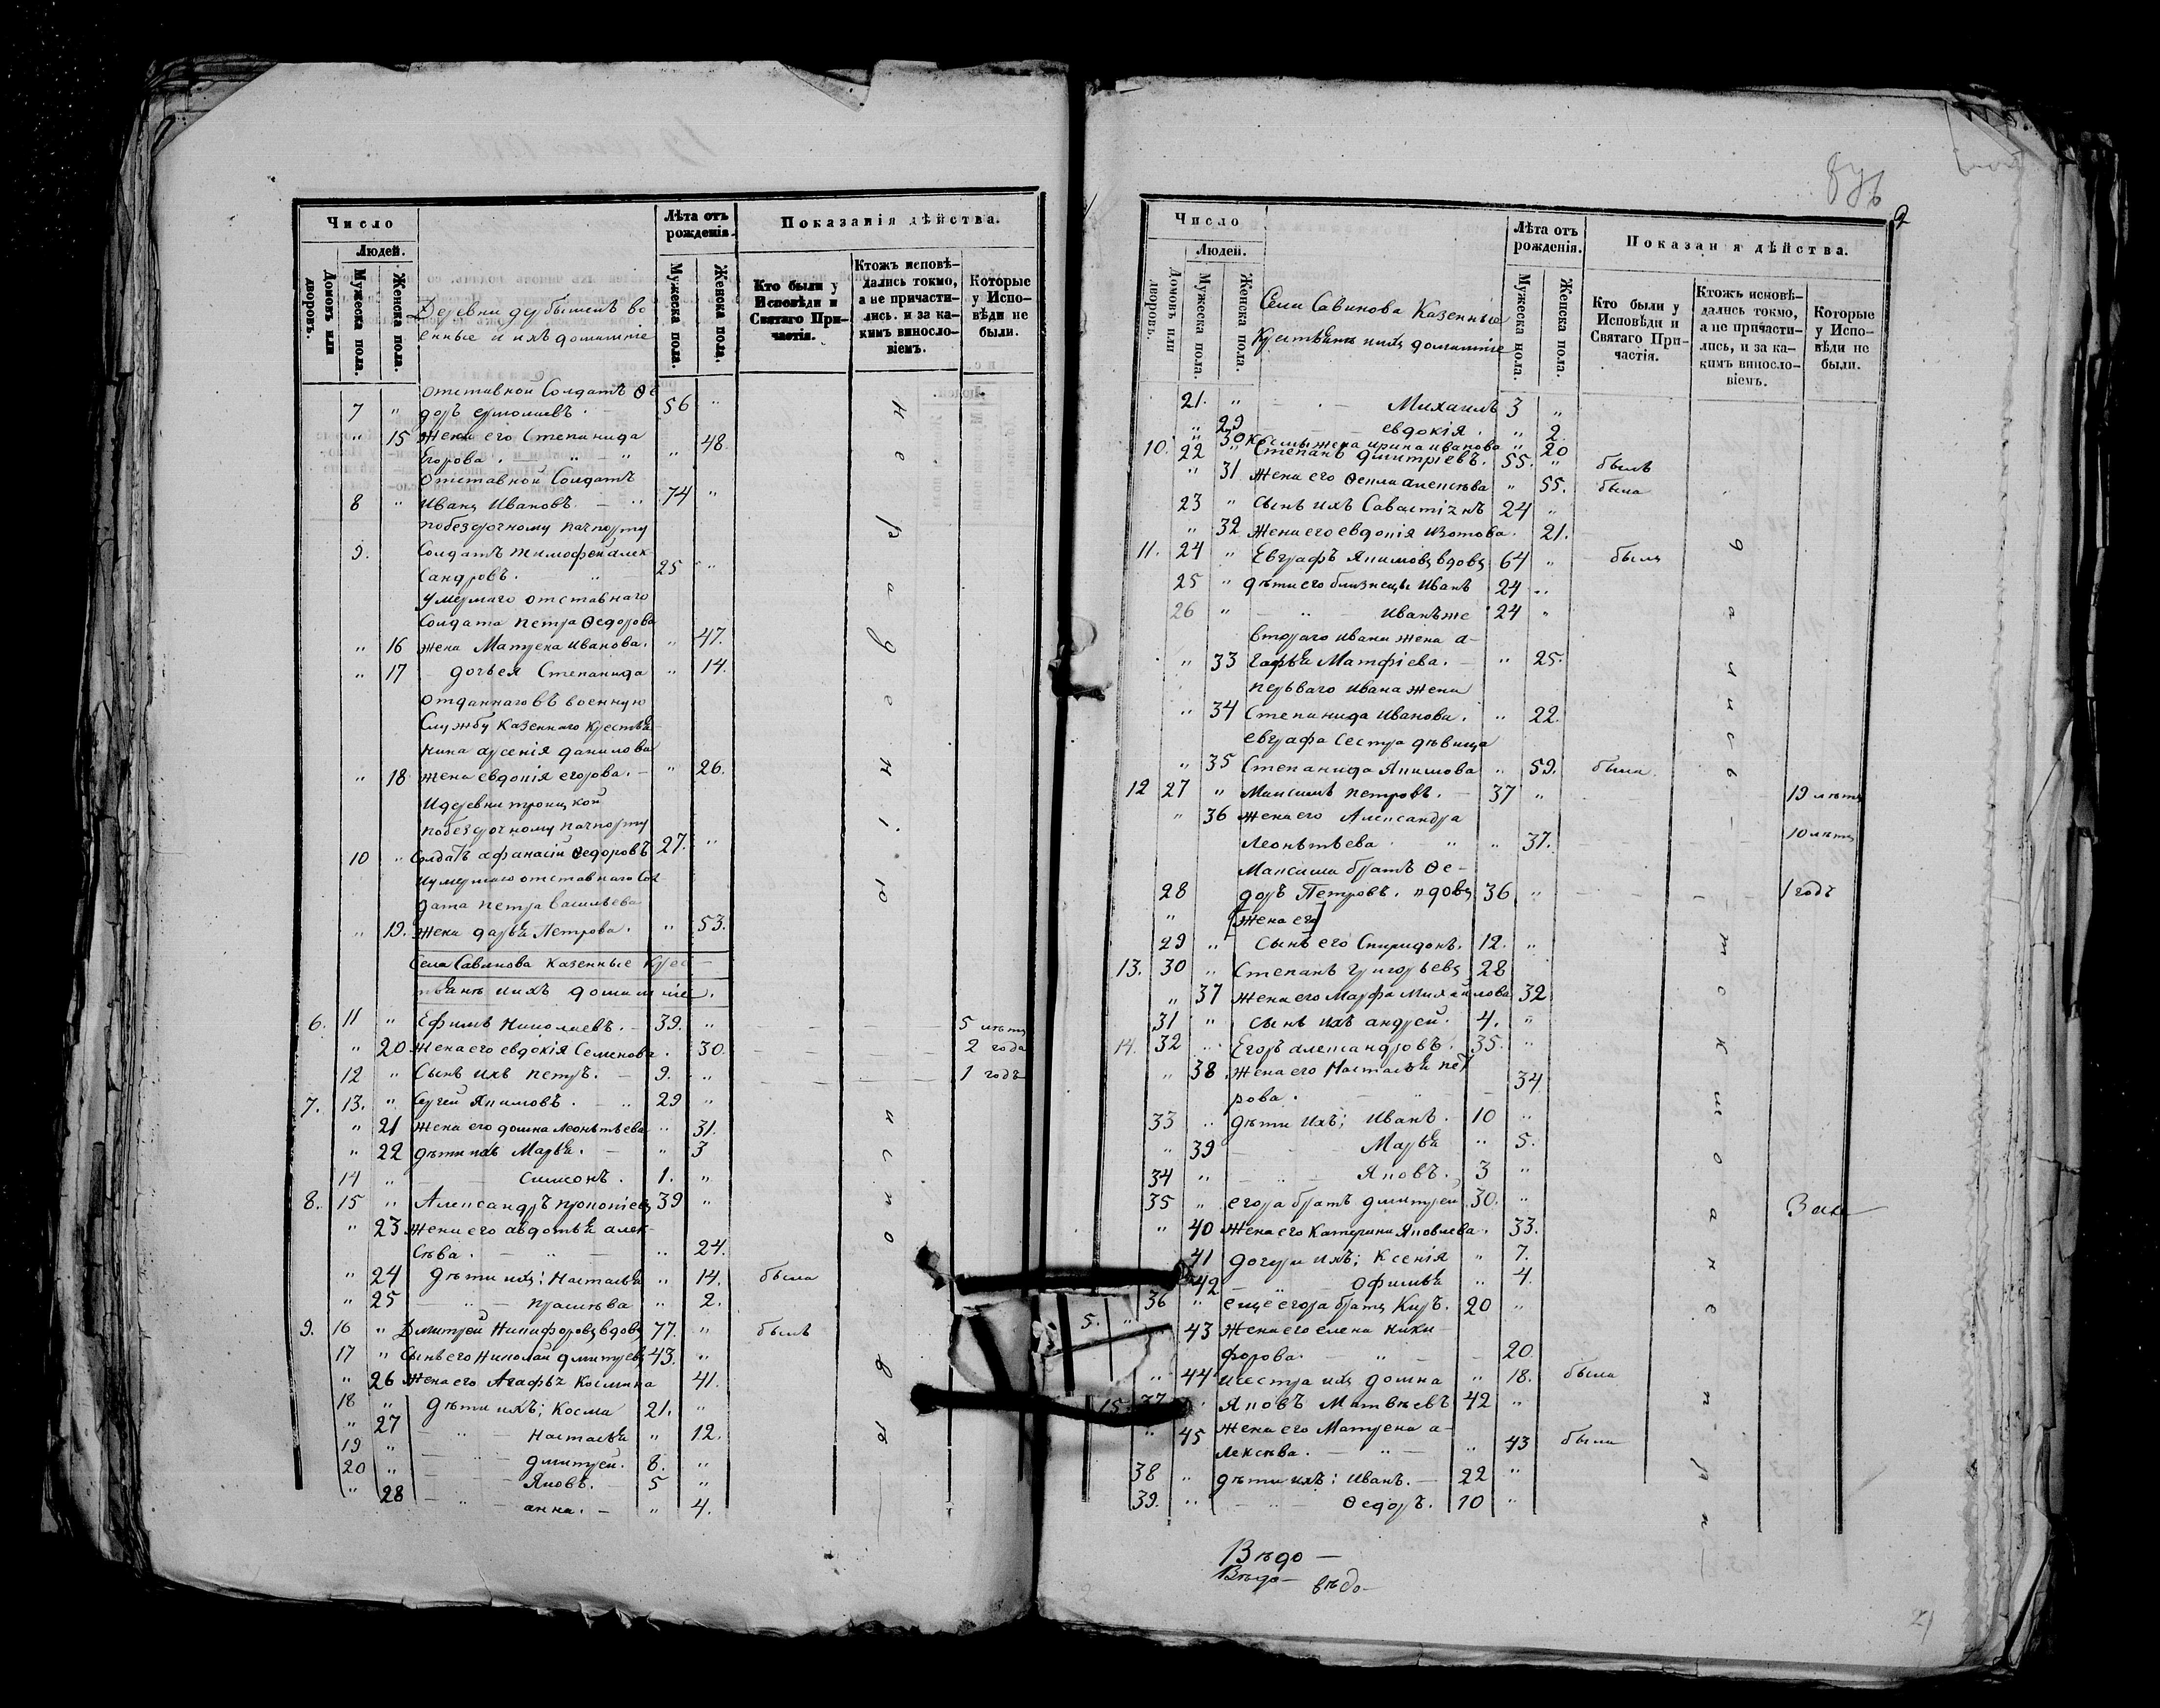 Число
Людей.
Домовъ или дворовъ.
Мужеска пола.
Женска пола.
Деревни дербышекъ во
енные и ихъ домашніе
Лѣта отъ рожденія.
Мужеска пола.
Женска пола.
Показанія дѣйства.
Кто были у Исповѣди и Святаго Причастія.
Ктожъ исповѣдались токмо, а не причастились. и за какимъ винословіемъ.
Которые у Исповѣди не были.
отставной Солдатъ Ѳе
7 " доръ ермолаевъ. 56 "
" 15 жена его Степанида 48.
Егорова. " "
Отставной Солдатъ
8 " Иванъ Ивановъ. 74 "
побезсрочному пачпорту
9. Солдатъ тимофей алек
сандровъ. 25 "
умершаго отставнаго
Солдата Петра Ѳедорова
" 16 жена Матрена Иванова. " 47.
" 17 дочь ея Степанида " 14.
отданнаго въ военную
Службу казеннаго крестья
нина арсенія данилова
" 18 жена евдокія егорова. " 26.
Идеревни троицкой
побезсрочному пачпорту
10 " Солдатъ афанасій Ѳедоровъ 27. "
Иумершаго отставнаго Сол
дата петра васильева
" 19. жена дарья Петрова. " 53.
Села Савинова казенные крес
тьянѣ иихъ домашніе.
6. 11 " Ефимъ Николаевъ. 39. " 5 лѣтъ
" 20 Жена его евдокія Семенова. 30. 2 года
12 " Сынъ ихъ петръ. 9. " 1 годъ
7. 13. " Сергей Якимовъ. 29 "
" 21 Жена его домна леонтьева " 31.
" 22 дѣти ихъ Марья. " 3
14 " Симеонъ. 1. "
8. 15 " Александръ прокопіевъ 39 "
" 23 Жена его авдотья алек
сѣева. " 24.
" 24 дѣти ихъ: Настасья " 14. была
" 25 " прасковья " 2.
9. 16 " Дмитрей Никифоровъ вдовъ 77. " былъ
17 " Сынъ его Николай дмитревъ 43. "
" 26 Жена его Агафья Космина 41.
18 " дѣти ихъ; Косма 21. "
" 27 " Настасья " 12.
19 " дмитрей. 8. "
20 " Яковъ. 5 "
" 28 " анна. " 4.
н е р а д е н і ю
и с п о в ѣ
2
Число
Людей.
Домовъ или дворовъ.
Мужеска пола.
Женска пола.
Села Савинова Казенные
Крестьянѣ иихъ домашніе
Лѣта отъ рожденія.
Мужеска пола.
Женска пола.
Показанія дѣйства.
Кто были у Исповѣди и Святаго Причастія.
Ктожъ исповѣдались токмо, а не причастились, и за какимъ винословіемъ.
Которые у Исповѣди не были.
21. " Михаилъ 3 "
" 29 евдокія. " 2.
" 30 Космы жена ирина иванова " 20
10. 22 " Степанъ дмитріевъ. 55. " былъ
" 31 Жена его Ѳекла алексѣева " 55. была
23 " Сынъ ихъ Савастіянъ 24 "
" 32 Жена его евдокія Изотова. 21.
11. 24 " Евграфъ Якимовъ вдовъ 64 " былъ
25 " дѣти его близнецы Иванъ 24 "
26 " " иванъ же 24 "
втораго ивана жена а
" 33 гафья Матфіева. " 25.
перьваго ивана жена
" 34 Степанида Иванова. " 22.
евграфа Сестра дѣвица
" 35 Степанида Якимова " 59. была.
12 27 " Максимъ петровъ. 37 " 19 лѣтъ
" 36 жена его Александра
Леонтьева " " 37. 10 лѣтъ
Максима братъ Ѳе
28 доръ Петровъ. вдовъ 36 " 1 годъ
" [Жена его]
29 " Сынъ его Спиридонъ. 12. "
13. 30 " Степанъ григорьевъ 28
" 37 Жена его Марфа Михайлова 32
31 " Сынъ ихъ андрей. 4. "
14. 32 " Егоръ александровъ. 35. "
" 38. Жена его Настасья пет
рова. 34
33 " дѣти ихъ; Иванъ. 10 "
" 39 Марья " 5.
34 " Яковъ. 3 "
35 " егора братъ дмитрей 30. "
" 40 Жена его Катерина Яковлева. 33.
41 дочери ихъ; Ксенія " 7.
42 Офимья " 4.
36 " еще егора братъ Киръ. 20 "
43 Жена его елена ники
форова. " 20.
" 44 исестра ихъ домна " 18. была
15. 37 " Яковъ Матвѣевъ 42 "
" 45 Жена его Матрена а
лексѣева. " " 43 была
38 " дѣти ихъ: Иванъ. 22 "
39. " Ѳедоръ. 10 "
5. "
Вѣдо
Вѣдо вѣдо